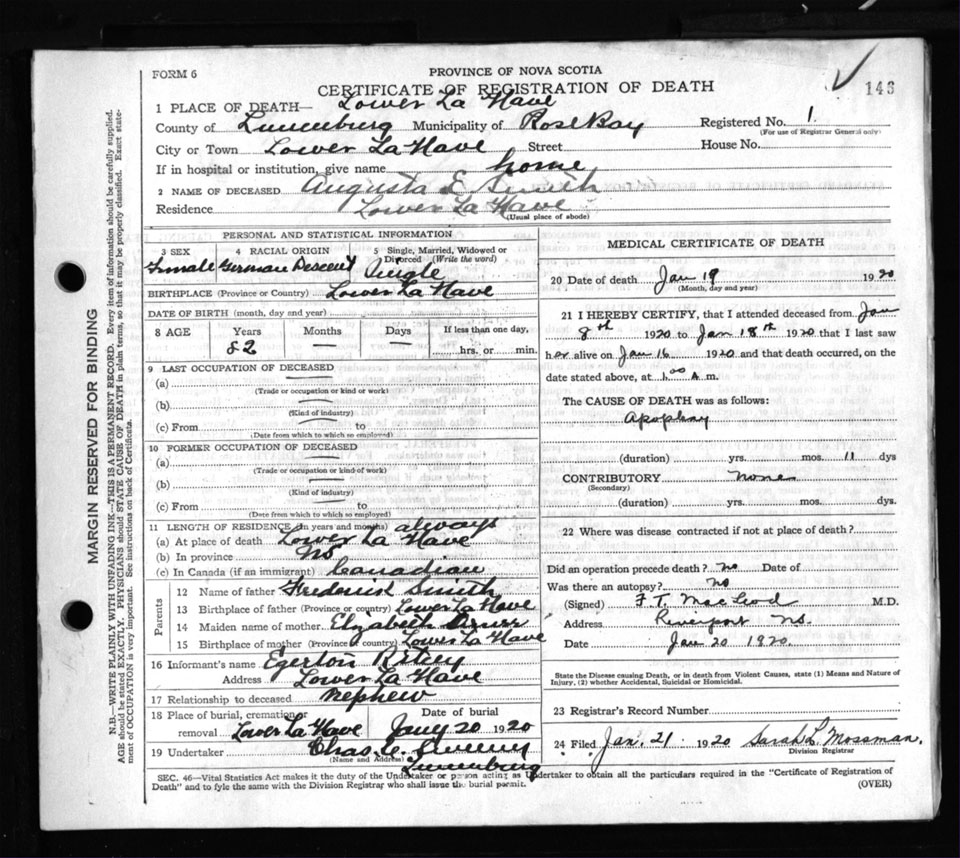 FORM 6
PROVINCE OF NOVA SCOTIA
CERTIFICATE OF REGISTRATION OF DEATH
146
1 PLACE OF DEATH— Lower La Have
County of Lunenburg Municipality of Rose Bay Registered No. 1.
(For use of Registrar General only)
City or Town Lower La Have Street House No.
If in hospital or institution, give name home
2 NAME OF DECEASED Augusta E Smith
Residence Lower La Have
(Usual place of abode)
PERSONAL AND STATISTICAL INFORMATION
3 SEX 4 RACIAL ORIGIN 5 Single, Married, Widowed or Divorced (Write the word)
Female German Descent Single
BIRTHPLACE (Province or Country) Lower La Have
DATE OF BIRTH (month, day and year)
8 AGE Years Months Days If less than one day,
82 — — hrs. or min.
9 LAST OCCUPATION OF DECEASED
(a) —
(Trade or occupation or kind of work)
(b) —
(Kind of industry)
(c) From to
(Date from which to which so employed)
10 FORMER OCCUPATION OF DECEASED
(a) —
(Trade or occupation or kind of work)
(b) —
(Kind of industry)
(c) From to
(Date from which to which so employed)
11 LENGTH OF RESIDENCE (in years and months) always
(a) At place of death Lower La Have
(b) In province NS
(c) In Canada (if an immigrant) Canadian
Parents
12 Name of father Frederick Smith
13 Birthplace of father (Province or country) Lower La Have
14 Maiden name of mother Elizabeth
15 Birthplace of mother (Province or country) Lower La Have
16 Informant's name Egerton
Address Lower La Have
17 Relationship to deceased nephew
18 Place of burial, cremation or removal Lower La Have Date of burial Jany 20 1920
19 Undertaker Chas.
(Name and Address) Lunenburg
MEDICAL CERTIFICATE OF DEATH
20 Date of death Jan 19 1920
(Month, day and year)
21 I HEREBY CERTIFY, that I attended deceased from Jan
8th 1920 to Jan 18th 1920 that I last saw
her alive on Jan 16 1920 and that death occurred, on the
date stated above, at 1.00 A m.
The CAUSE OF DEATH was as follows:
(duration) yrs. mos. 11 dys
CONTRIBUTORY None
(Secondary)
(duration) yrs. mos. dys.
22 Where was disease contracted if not at place of death?
Did an operation precede death? no Date of
Was there an autopsy? no
(Signed) F. T. MacLeod M.D.
Address Riverport NS.
Date Jan 20 1920.
State the Disease causing Death, or in death from Violent Causes, state (1) Means and Nature of
Injury, (2) whether Accidental, Suicidal or Homicidal.
23 Registrar's Record Number
24 Filed Jan. 21. 1920 Sarah L. Mossman.
Division Registrar
SEC. 46—Vital Statistics Act makes it the duty of the Undertaker or person acting as Undertaker to obtain all the particulars required in the "Certificate of Registration of
Death" and to fyle the same with the Division Registrar who shall issue the burial permit.
(OVER)
MARGIN RESERVED FOR BINDING
N.B.—WRITE PLAINLY WITH UNFADING INK—THIS IS A PERMANENT RECORD. Every item of information should be carefully supplied.
AGE should be stated EXACTLY. PHYSICIANS should STATE CAUSE OF DEATH in plain terms, so that it may be properly classified. Exact statement of OCCUPATION is very important. See instructions on back of Certificate.